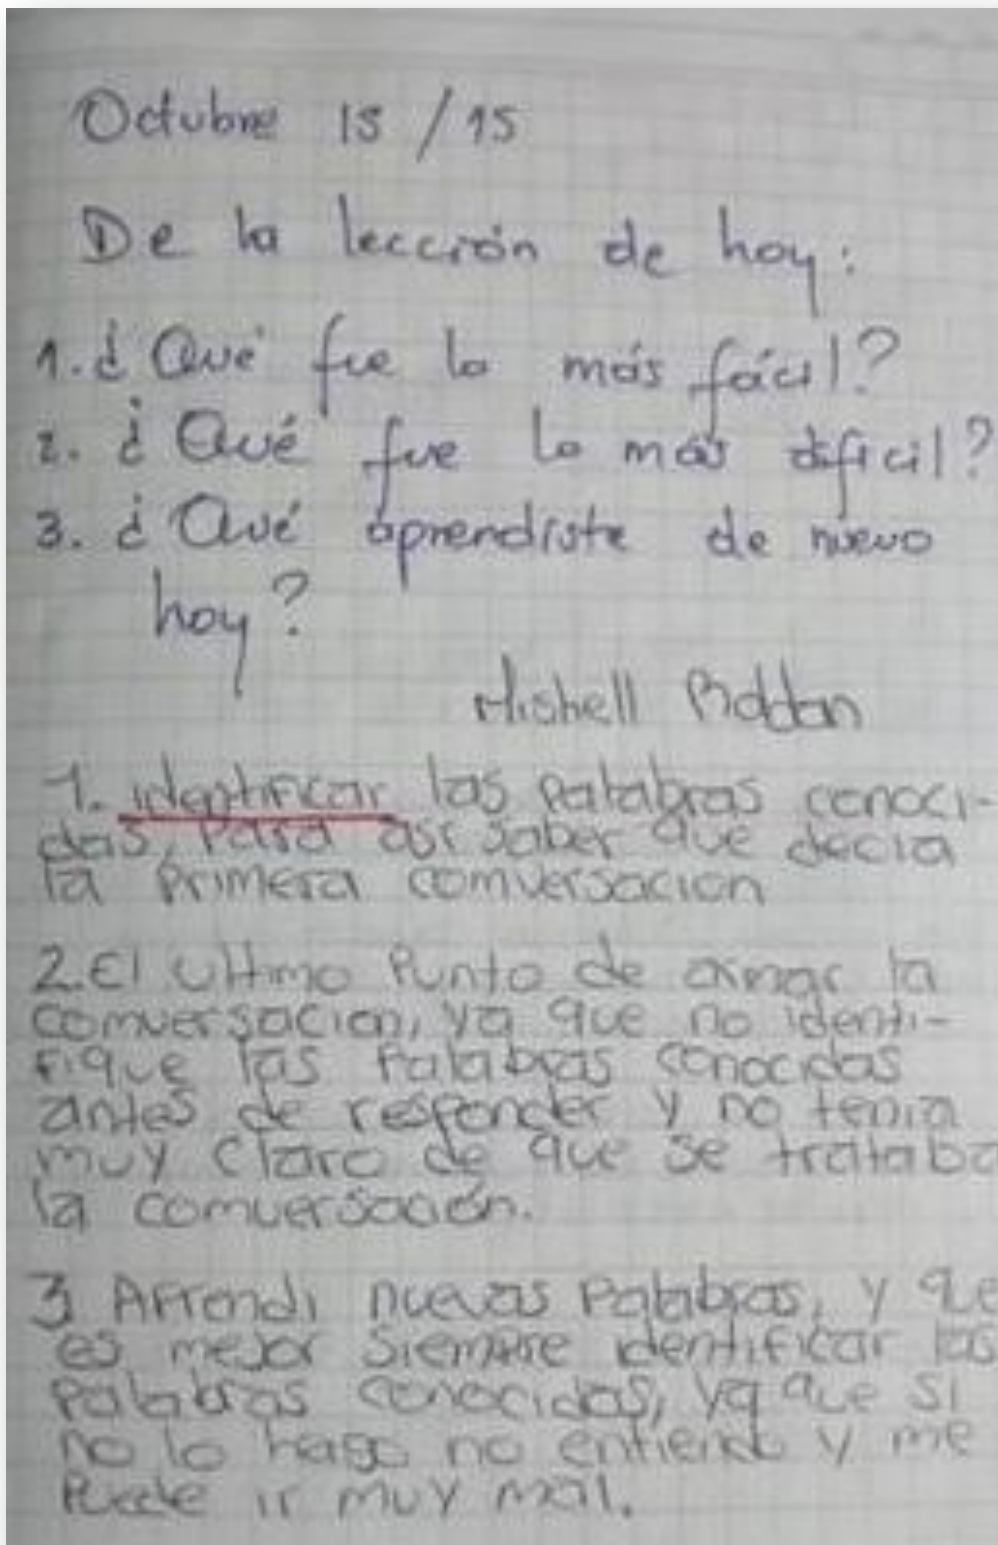 Octubre 15 / 15
De la lección de hoy:
1. ¿Qué fue lo más fácil?
2. ¿Qué fue lo más dificil?
3. ¿Qué aprendiste de nuevo
hoy?
Mishell
1. identificar las palabras conoci-
das, para asi saber que decia
la primera comversacion
2. El ultimo punto de armar la
comversacion, ya que no identi-
fique las palabras conocidas
antes de responder y no tenia
muy claro de que se trataba
la comversación.
3 Aprendi nuevas palabras, y que
es mejor siempre identificar las
palabras conocidas, ya que si
no lo hago no entiendo y me
puede ir muy mal.